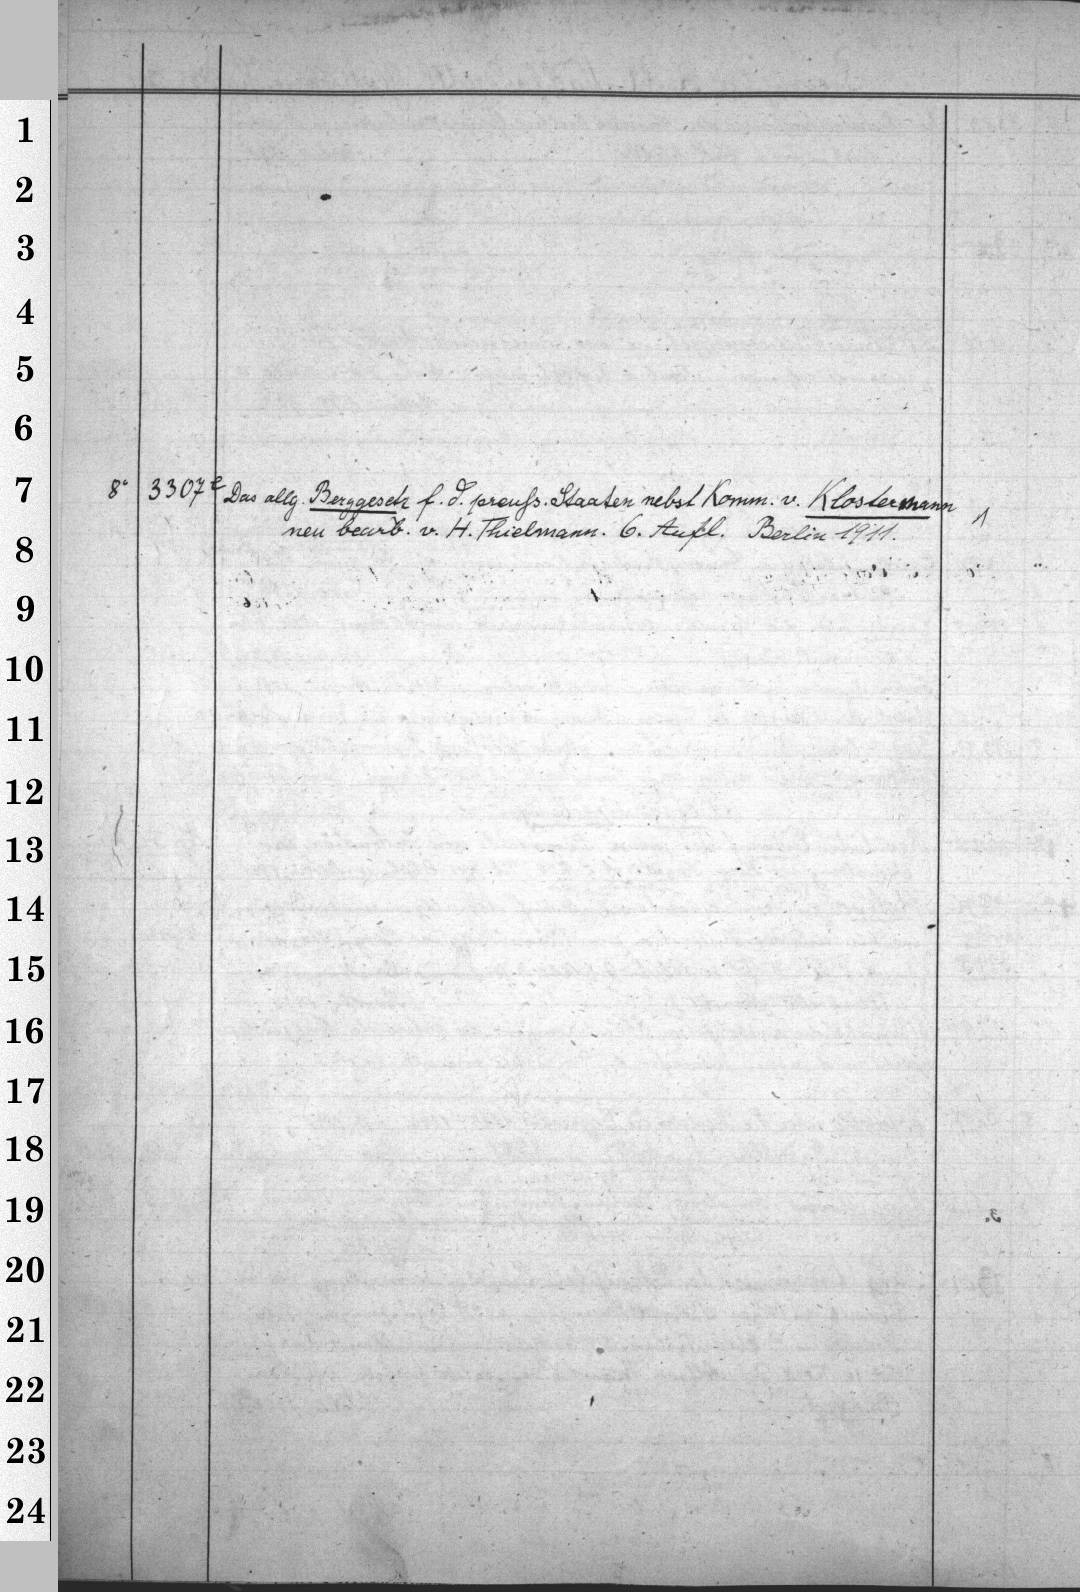 1
2
3
4
5
6
7
8° 3307e Das allg. Berggesetz f. d. preuß. Staaten nebst Komm. v. Klostermann
neu bearb. v. H. Thielmann. 6. Aufl. Berlin 1911. 1
8
9
10
11
12
13
14
15
16
17
18
19
20
21
22
23
24